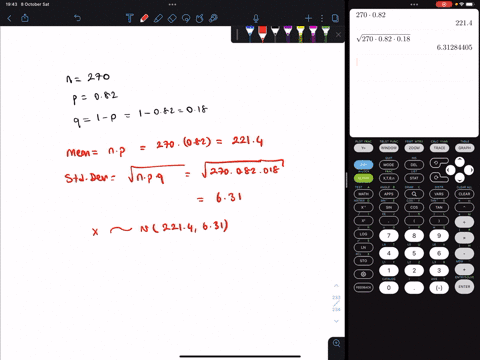 19:43 8 October Sat
n = 270
p = 0.82
q = 1 - p = 1 - 0.82 = 0.18
Mean = n.p = 270.(0.82) = 221.4
Std.Dev = √n.p q = √270.082.018
= 6.31
X ~ N(221.4, 6.31)
270·0.82
221.4
√270·0.82·0.18
6.31284405
WINDOW ZOOM TRACE GRAPH
MODE DEL
ALPHA X,T,θ,n STAT
MATH APPS PRGM VARS CLEAR
X⁻¹ SIN COS TAN ^
X² , ( ) ÷
LOG 7 8 9 ×
LN 4 5 6 −
STO 1 2 3 +
FEEDBACK 0 . (-) ENTER